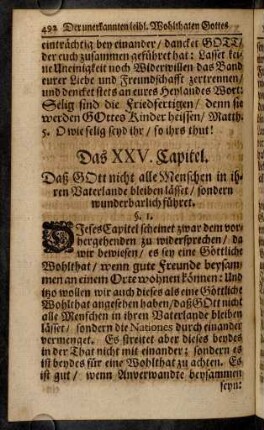 492 Der unerkannten leibl. Wohlthaten Gottes
einträchtig bey einander / dancket GOTT /
der euch zusammen geführet hat: Lasset kei-
ne Uneinigkeit noch Widerwillen das Band
eurer Liebe und Freundschafft zertrennen /
und dencket stets an eures Heylandes Wort:
Selig sind die Friedfertigen / denn sie
werden GOttes Kinder heissen / Matth.
5. O wie selig seyd ihr / so ihrs thut!
Das XXV. Capitel.
Daß GOtt nicht alle Menschen in ih-
ren Vaterlande bleiben lässet / sondern
wunderbarlich führet.
§. 1.
DIeses Capitel scheinet zwar dem vor-
hergehenden zu widersprechen / da
wir bewiesen / es sey eine Göttliche
Wohlthat / wenn gute Freunde beysam-
men an einem Orte wohnen können: Und
itzo wollen wir auch dieses als eine Göttliche
Wohlthat angesehen haben / daß GOtt nicht
alle Menschen in ihren Vaterlande bleiben
lässet / sondern die Nationes durch einander
vermenget. Es streitet aber dieses beydes
in der That nicht mit einander; sondern es
ist beydes für eine Wohlthat zu achten. Es
ist gut / wenn Anverwandte beysammen
seyn: